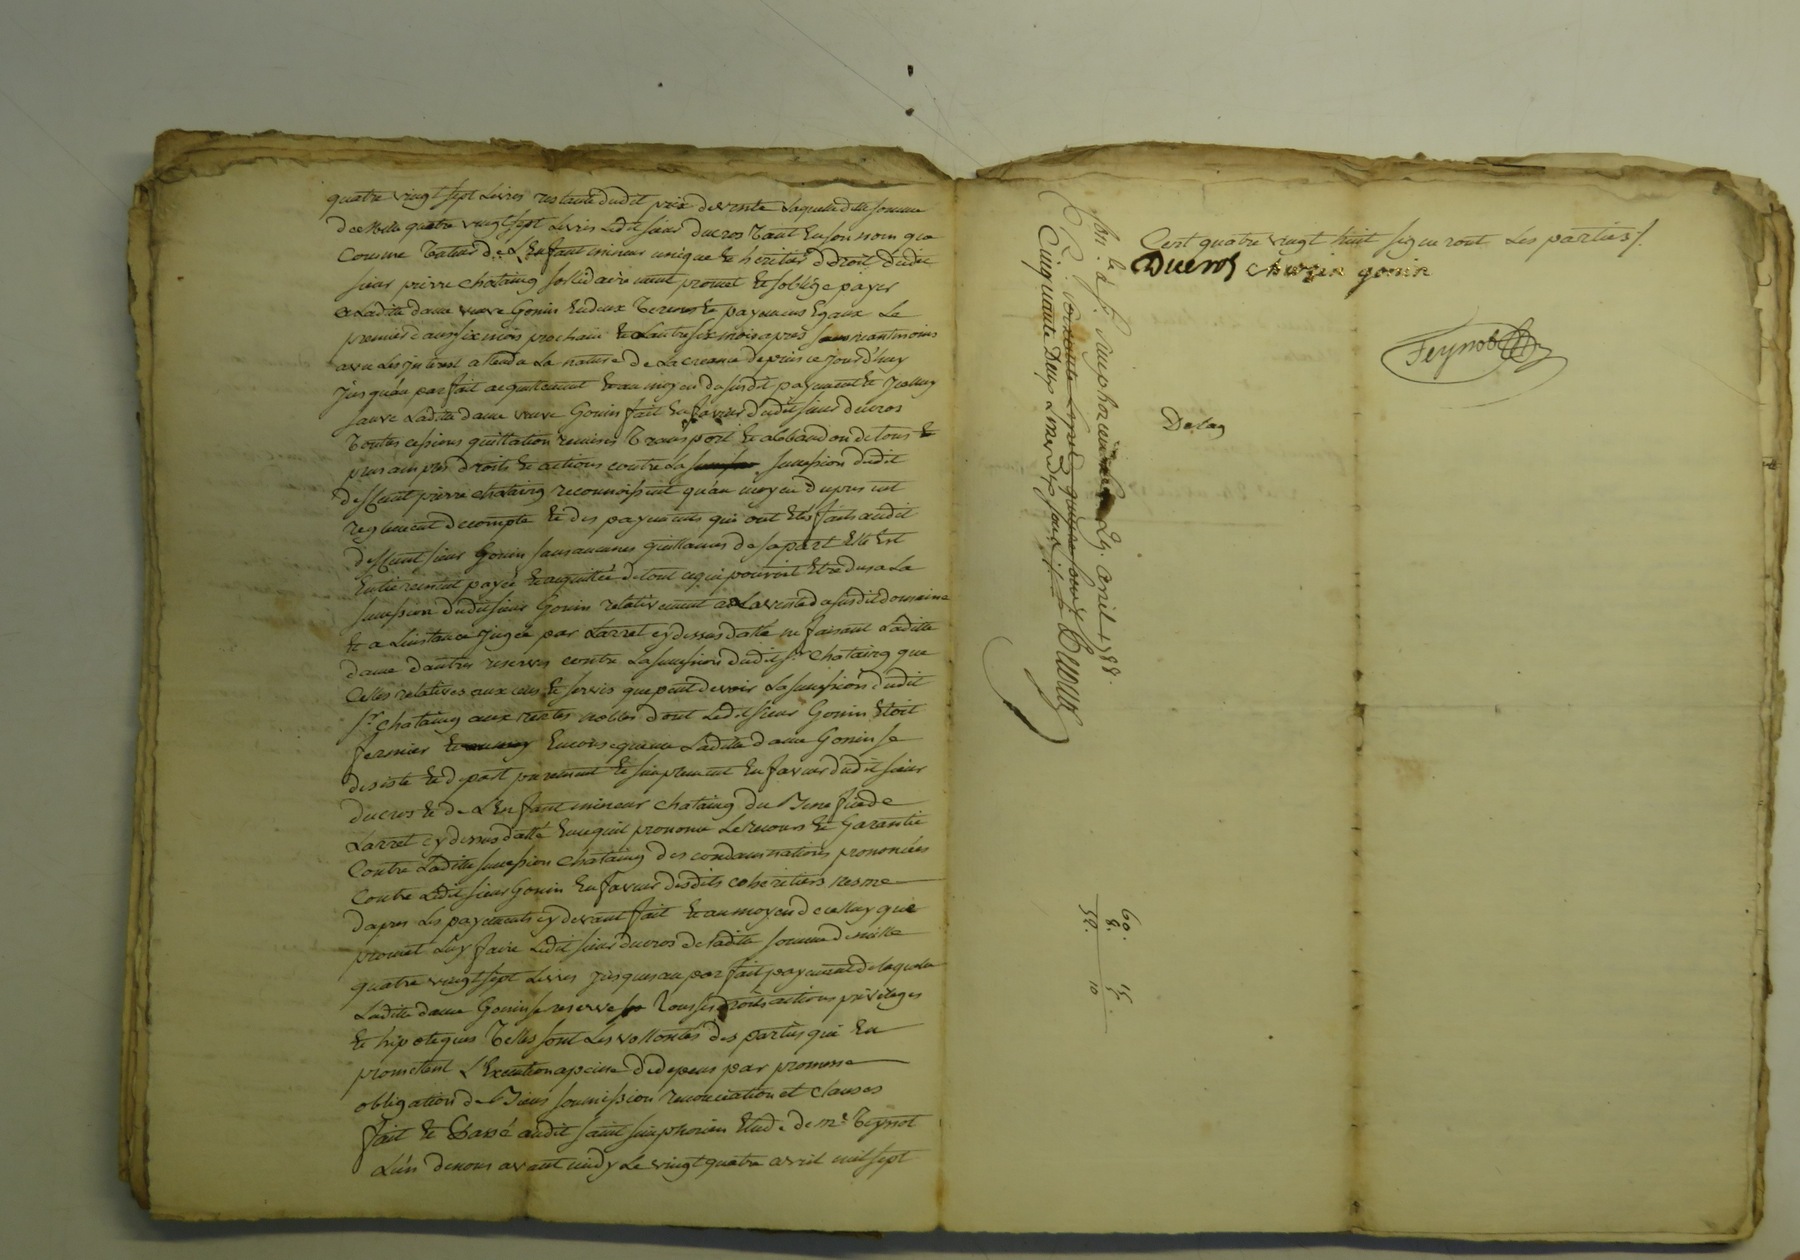 quatre vingt sept Livres restante dudit prix de vente laquelle ditte somme
de Mille quatre vingt sept Livres Ledit sieur ducros tant En son nom que
comme Tuteur de L'Enfant mineur unique Et heritier de droit dudit
sieur pierre chataing solidairement promet Et soblige payer
a Laditte dame veuve Gonin En deux Termes Et payemens Egaux Le
premier dans six mois prochain Et L'autre six mois apres neantmoins
avec Les Interest attendu La nature de La creance depuis ce jourd'huy
Jusqu'au parfait acquittement Et au moyen du susdit payement Et Icelluy
sauve Laditte dame veuve Gonin fait En faveur dudit sieur ducros
Toutes cessions quittation remises Transport Et abbandon de tous Et
plus amples droits Et actions contre La succession dudit
deffunt pierre chataing reconnoissant qu'au moyen du present
reglement de compte Et des payements qui ont Etés faits audit
deffunt sieur Gonin sans aucunes quittances de sa part Elle Est
Entierement payée Et acquittée de tout ce qui pouvoit Etre du a La
succession dudit sieur Gonin relativement a La vente du susdit domaine
Et a L'instance jugée par L'arret cy dessus datté ne faisant Laditte
dame d'autres reserves contre La succession dudit sr chataing que
Celles relatives aux cens Et servis que peut devoir La succession dudit
sr chataing aux rentes nobles dont Ledit sieur Gonin Etoit
fermier En consequence Laditte dame Gonin se
desiste Et depart purement Et simplement En faveur dudit sieur
ducros Et de L'Enfant mineur chataing du Benefice de
L'arret cy dessus datté En ce qu'il prononce Le recours Et Garantie
Contre Laditte succession chataing des condamnations prononcées
Contre Ledit sieur Gonin En faveur desdits coheritiers
d'apres Les payements cy devant fait Et au moyen de celluy que
promet Luy faire Ledit sieur ducros de laditte somme de mille
quatre vingt sept Livres jusques au parfait payement de laquelle
Laditte dame Gonin se reserve Tous ses droits actions privileges
Et hipoteques Telles sont Les vollontés des parties qui En
promettent L'Execution a peine de depens par promesse
obligation de Biens soumission renonciation et clauses
fait Et Passé audit saint simphorien Etude de me Teynot
L'un de nous avant midy Le vingt quatre avril mil sept
Cent quatre vingt huit signeront Les parties /.
Ducros chuzin gonin
Teynot
Delay
a St. simphorien Le 29. avril 1788
Cinquante Deux Livres Dix sous
60. 15
8. 5
52. 10